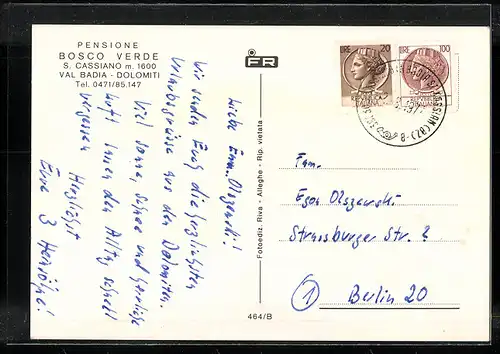 PENSIONE
BOSCO VERDE
S. CASSIANO m. 1600
VAL BADIA - DOLOMITI
Tel. 0471/85.147
FR
LIRE 20
LIRE 100
ITALIANA
ITALIANE
Liebe Fam. Olszewski!
Wir senden Euch die herzlichsten
Urlaubsgrüsse aus den Dolomiten.
Viel Sonne, Schnee und herrliche
Luft lassen den Alltag schnell
vergessen. Herzlichst
Eure 3
Fotoediz. Riva - Alleghe - Rip. vietata
464/B
Fam.
Egon Olszewski
Strassburger Str. 2
1 Berlin 20